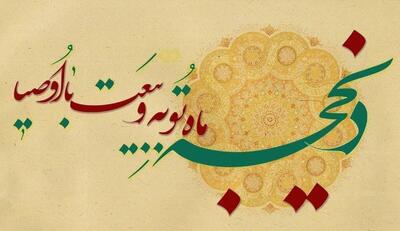 ذیحجه
ماه تُوبه و بیعت با اُوصیا